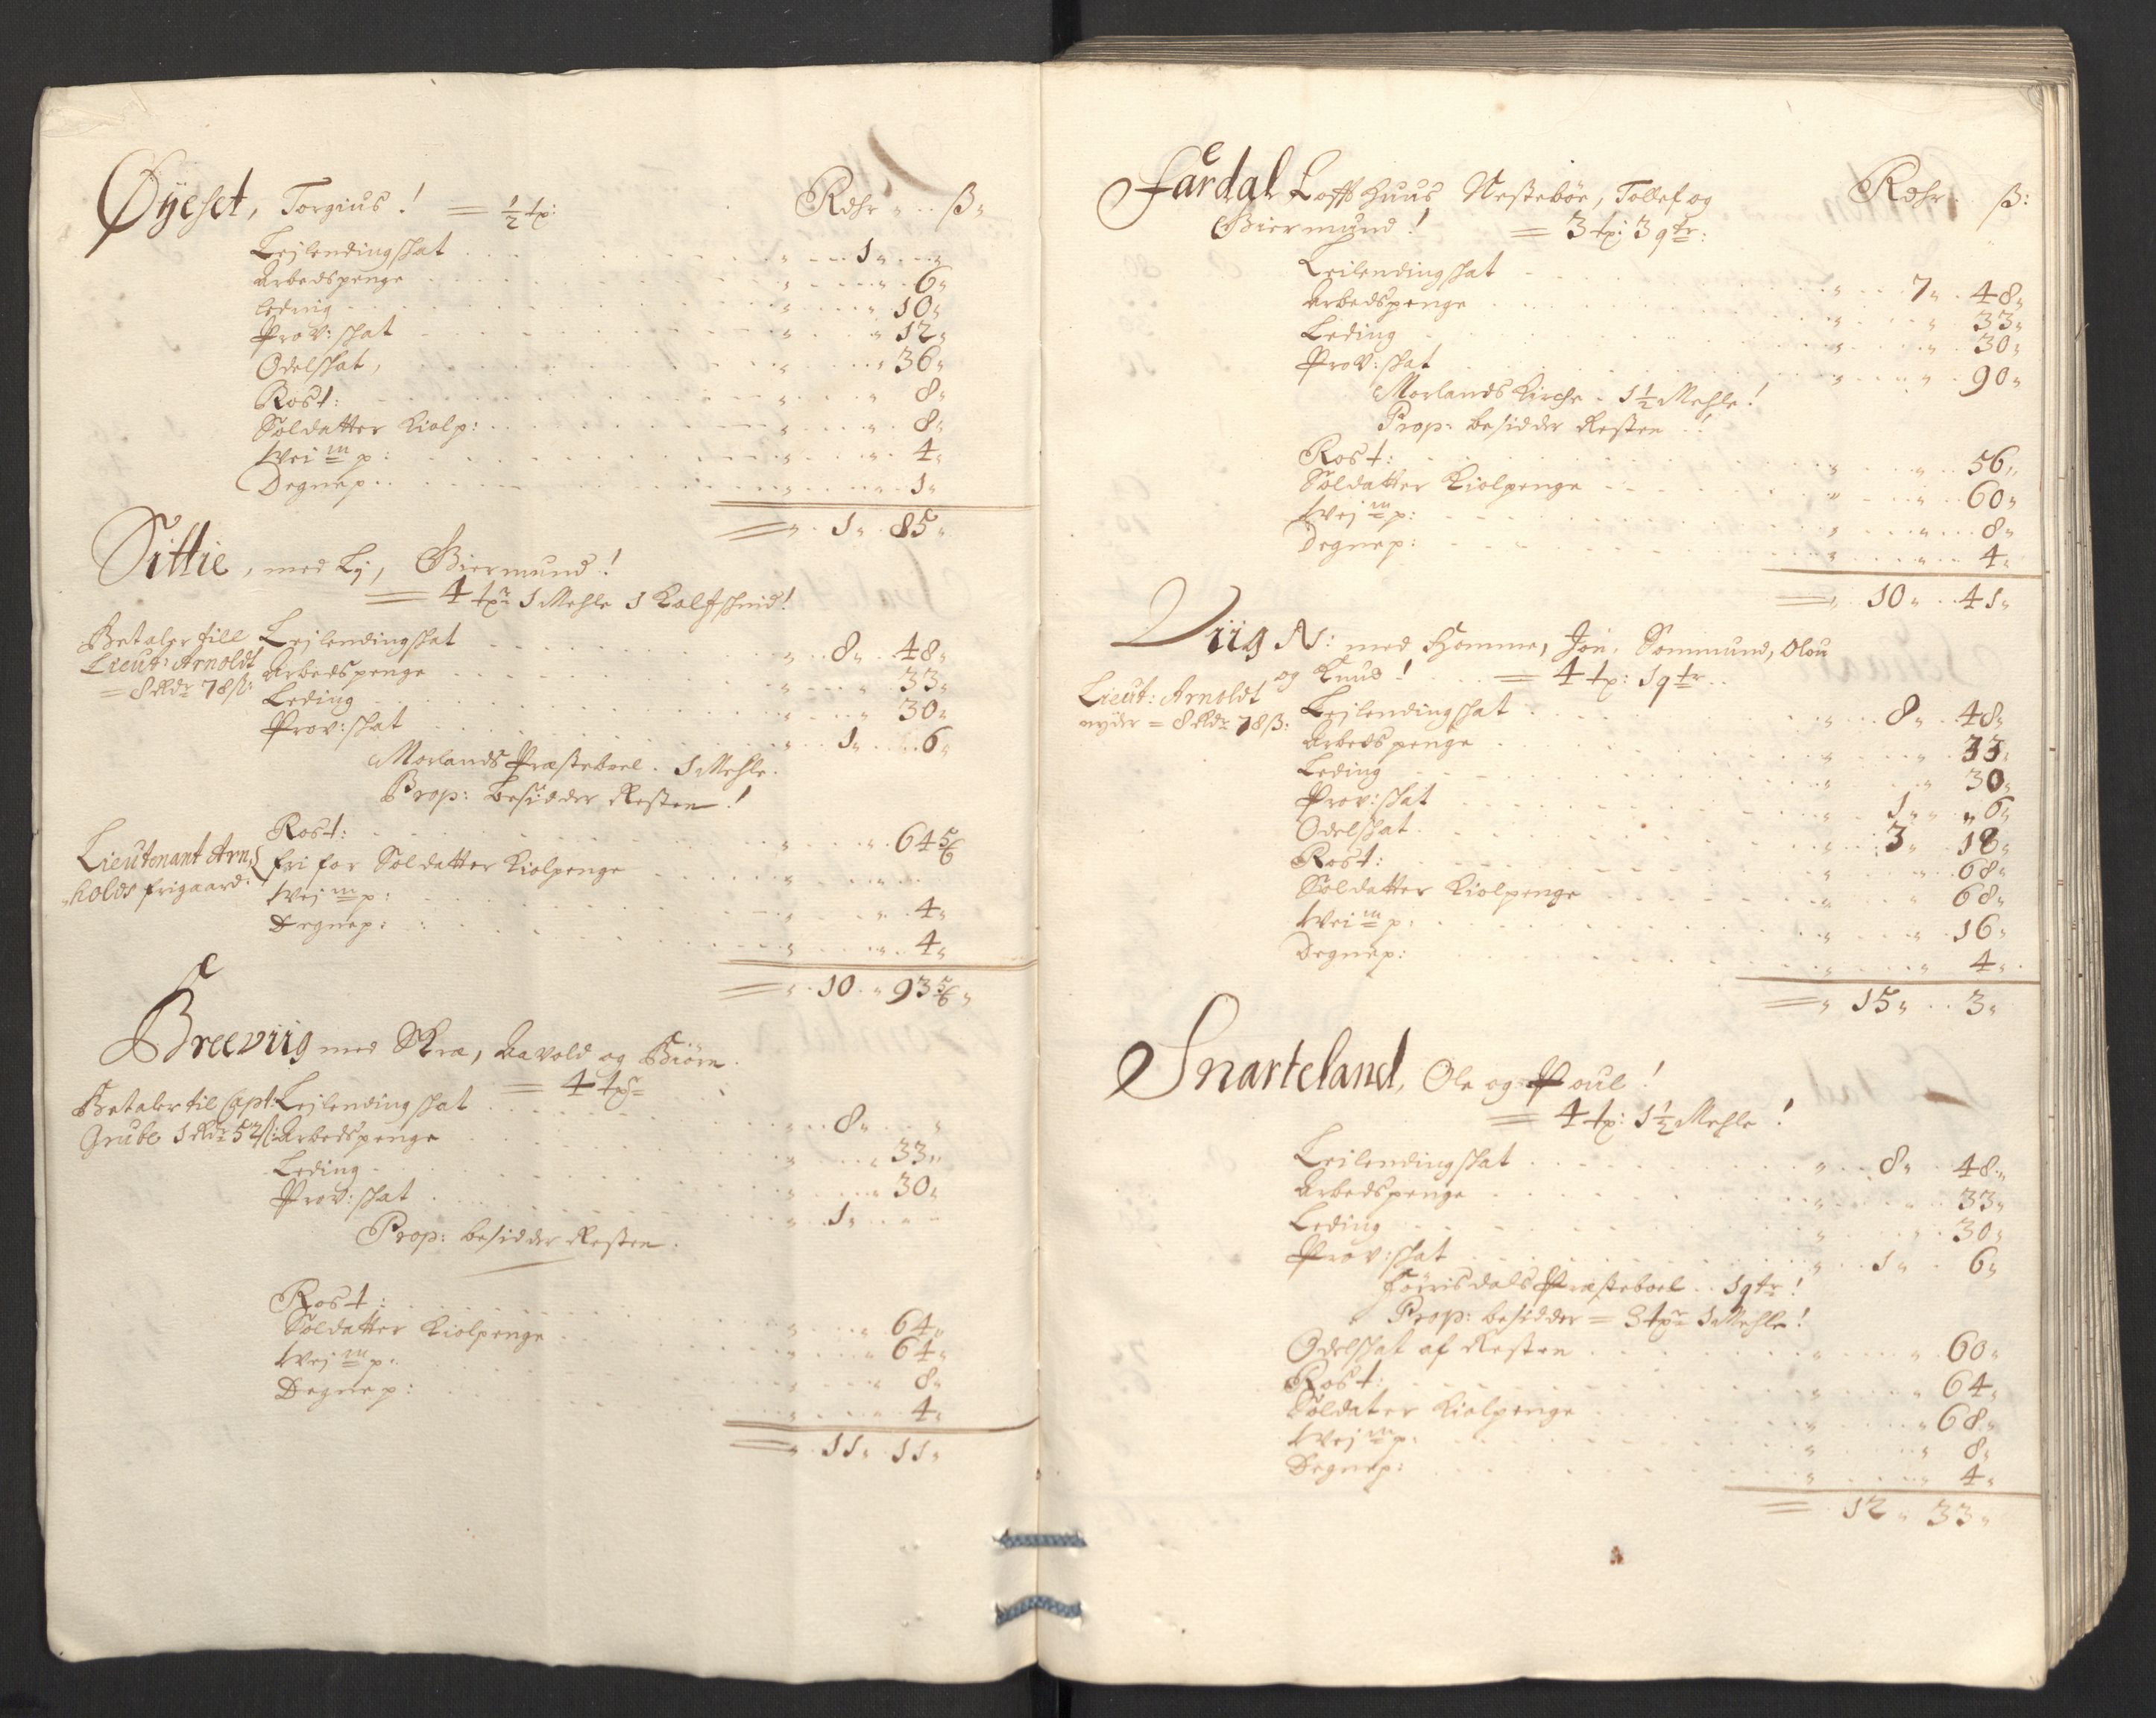 Øÿeset, Torgius! = ½ tp: Rdhr ß
Lejlendingschat 1
Arbedspenge 6
Leding 10
Prov: schat 12
Odelschat, 36
Rost: 8
Soldatter Kiolp: 8
Wei m p: 4
Degnep: 1
= 1 85
Sittie, med Lj, Biermund!
= 4 tpr 1 Mehle 1 Kalfschind!
Betaler till
Lieut: Arnoldt
= 8 Rdr 78 ß:
Lejlendingschat 8 48
Arbedspenge 33
Leding 30
Prov: schat 1 6
Morlands Præsteboel. 1 Mehle.
Prop: besidder Resten!
Lieutenant Arn,
holds frigaard.
Rost: 64 5/6
fri for Soldatter Kiolpenge
Wej m p: 4
Degnep: 4
= 10 93 5/6
Breeviig med Skræ, Aavold og Biørn.
= 4 tpr
Betaler til Capt:
Grube 1 Rdr 52 ß:
Lejlendingschat 8
Arbedspenge 33
Leding 30
Prov: schat 1
Prop: besidder Resten.
Rost: 64
Soldatter Kiolpenge 64
Wej m p: 8
Degnep: 4
= 11 11
Fardal Loffthuus Nestebøe, Tollef og Rdhr ß:
Biermund! = 3 tp: 3 qtr:
Leilendingschat 7 48
Arbedspenge 33
Leding 30
Prov: schat 90
Morlands Kirche - 1½ Mehle!
Prop: besidder Resten!
Rost: 56
Soldatter Kiolpenge 60
Wej m p: 8
Degnep: 4
= 10 41
Viig N: med Homme, Jon, Sommund, Olou
og Knud! = 4 tp: 1 qtr
Lieut: Arnoldt
nyder = 8 Rdr 78 ß:
Lejlendingschat 8 48
Arbedspenge 33
Leding 30
Prov: schat 1 6
Odelschat 3 18
Rost: 68
Soldatter Kiolpenge 68
Wei m p: 16
Degnep: 4
= 15 3
Snarteland, Ole og Poul!
= 4 tp: 1½ Mehle!
Leilendingschat 8 48
Arbedspenge 33
Leding 30
Prov: schat 1 6
Høirisdals Præsteboel 1 qtr!
Prop: besidder = 3 tpr 1 Mehle!
Odelschat af Resten 60
Rost: 64
Soldater Kiolpenge 68
Wej m p: 8
Degnep: 4
= 12 33